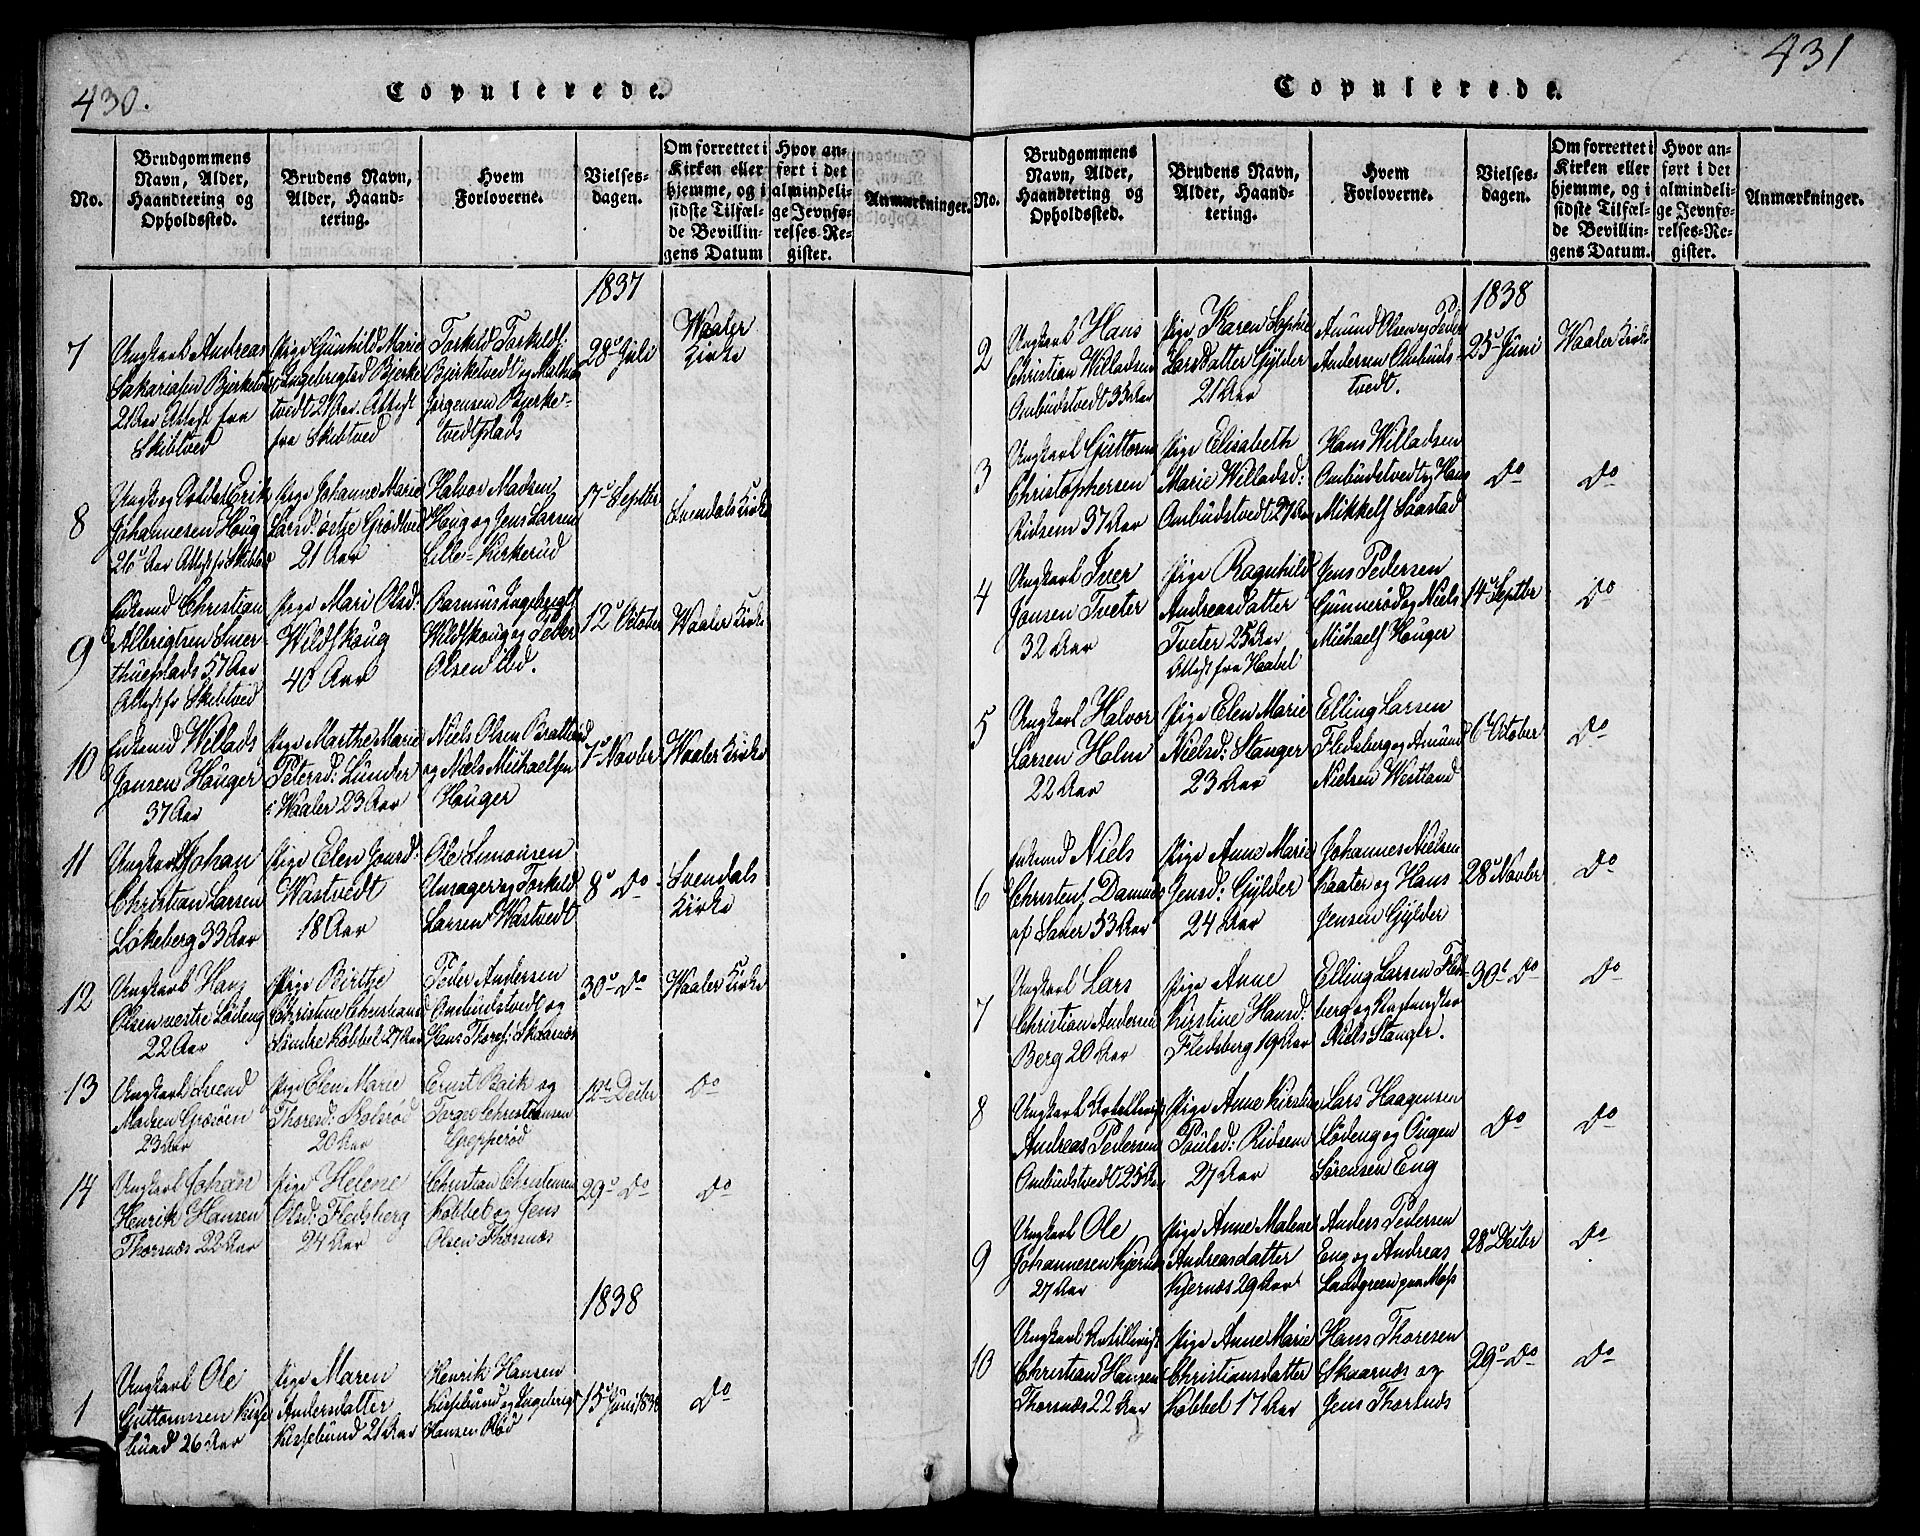 430.
Copulerede.
No.
Brudgommens
Navn, Alder,
Haandtering og
Opholdssted.
Brudens Navn,
Alder, Haand-
tering.
Hvem
Forloverne.
Vielses-
dagen.
Om forrettet i
Kirken eller
hjemme, og i
sidste Tilfæl-
de Bevillin-
gens Datum
Hvor an-
ført i det
almindeli-
ge Jevnfø-
relses-Re-
gister.
Anmærkninger.
1837
7
Ungkarl Andreas
Sakariasen
21 Aar Attest fra
Skibtved
Pige Gunhild Marie
Ingebrigtsd Bjerke-
tvedt 21 Aar. Attest
fra Skibtved
Torkild Torkilds:
Bjerketvedt og Mathis
Jørgensen Bjerke-
tvedtplads
28de Juli
Waaler
Kirke
8
Ungk og Soldat Erik
Johannesen Houg
26 Aar Attest fr Skibtved
Pige Johanne Marie
Larsd østre Grødtvedt
21 Aar
Halvor Madsen
Houg og Jens Larsen
Lille-Kirkerud
17de Septbr
Svendals Kirke
9
Enkemd Christian
Albrigtsen Smer
thueplads 57 Aar
Attest fr Skibtved
Pige Mari Olsd:
Wildskoug
40 Aar
Rasmus Ingebrigts
Wildskoug og Peder
Olsen ibd.
12te October
Waaler Kirke
10
Enkemd Willads
Jonsen Houger
37 Aar
Pige Marthe Marie
Petersd: Lunder
i Waaler 23 Aar
Niels Olsen Bratterud
og Niels Michaelsen
Houger
7de Novbr
Waaler Kirke
11
Ungkarl Johan
Christian Larsen
Løkeberg 33 Aar
Pige Elen Jonsd:
Wastvedt
18 Aar
Ole Simonsen
Unsager og Torkild
Larsen Wastvedt
8de Do
Svendals
Kirke
12
Ungkarl Hans
Olsen vestre Lødeng
22 Aar
Pige Birthe
Christine Christiansd
Søndre Kobbel 27 Aar
Peder Andersen
Ombudstvedt og
Hans Thores: Skaarnæs
30te Do
Waaler Kirke
13
Ungkarl Svend
Madsen Grøsøen
23 Aar
Pige Elen Marie
Thoresd: Nolsrød
20 Aar
Ernst Baik og
Torger Christensen
Grepperød
12te Decbr
Do
14
Ungkarl Johan
Henrik Hansen
Thorsnæs 22 Aar
Pige Helene
Olsd: Fledsberg
24 Aar
Christian Christensen
Kobbel og Jens
Olsen Thorsnæs
29de Do
Do
1838
1
Ungkarl Ole
Guttormsen Kisse
bund 26 Aar
Pige Maren
Andersdatter
Kissebund 21 Aar
Henrik Hansen
Kissebund og Ingebrigt
Hansen Rød
15de Juni 1838
Do
431
Copulerede.
No.
Brudgommens
Navn, Alder,
Haandtering og
Opholdssted.
Brudens Navn,
Alder, Haand-
tering.
Hvem
Forloverne.
Vielses-
dagen.
Om forrettet i
Kirken eller
hjemme, og i
sidste Tilfæl-
de Bevillin-
gens Datum.
Hvor an-
ført i det
almindeli-
ge Jevnfø-
relses-Re-
gister.
Anmærkninger.
1838
2
Ungkarl Hans
Christian Willadsen
Ombudstvedt 33 Aar
Pige Karen Sophie
Larsdatter Gylder
21 Aar
Amund Olsen og Peder
Andersen Ombuds-
tvedt.
25de Juni
Waaler Kirke
3
Ungkarl Guttorm
Christophersen
Ridsem 37 Aar
Pige Elisabeth
Marie Willadsd:
Ombudstvedt 27 Aar
Hans Willadsen
Ombudstvedt og Hans
Mikkels Saastad
Do
Do
4
Ungkarl Iver
Jonsen Tveter
32 Aar
Pige Ragnhild
Andreasdatter
Tveter 25 Aar
Attest fra Haabel
Jens Pedersen
Gunnerød og Niels
Michaels Houger
14de Septbr
Do
5
Ungkarl Halvor
Larsen Holm
22 Aar
Pige Elen Marie
Nielsd: Stanger
23 Aar
Elling Larsen
Fledsberg og Amund
Nielsen Westland
6te October
Do
6
Enkemd Niels
Christens
af Saner 53 Aar
Pige Anne Marie
Jensd: Gylder
24 Aar
Johannes Nielsen
Kaater og Hans
Jensen Gylder
28de Novbr
Do
7
Ungkarl Lars
Christian Andersen
Berg 20 Aar
Pige Anne
Kirstine Hansd:
Fledsberg 19 Aar
Elling Larsen Fleds-
berg og
Niels Stanger.
30te Do
Do
8
Ungkarl
Andreas Pedersen
Ombudstvedt 25 A
Pige Anne Kirstine
Poulsd: Ridsem
27 Aar
Lars Haagensen
Lødeng og Ougen
Sørensen Eng
Do
Do
9
Ungkarl Ole
Johannesen Kjernes
27 Aar
Pige Anne Malene
Andreasdatter
Kjernæs 29 Aar
Anders Pedersen
Eng og Andreas
Landgreen paa Moss
28de Decbr
Do
10
Ungkarl
Christian Hansen
Thorsnæs 22 Aar
Pige Anne Marie
Christiansdatter
Kobbel 17 Aar
Hans Thoresen
Skaarnæs og
Jens Thorsnæs
29de Do
Do